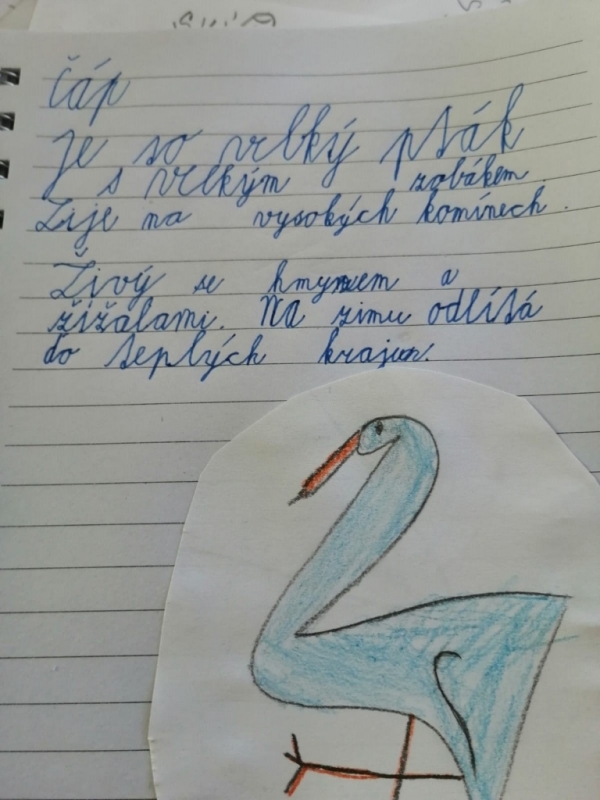 čáp
Je to velký pták
s velkým zobákem.
Žije na vysokých komínech.
Živý se hmyzem a
žížalami. Na zimu odlítá
do teplých krajun.